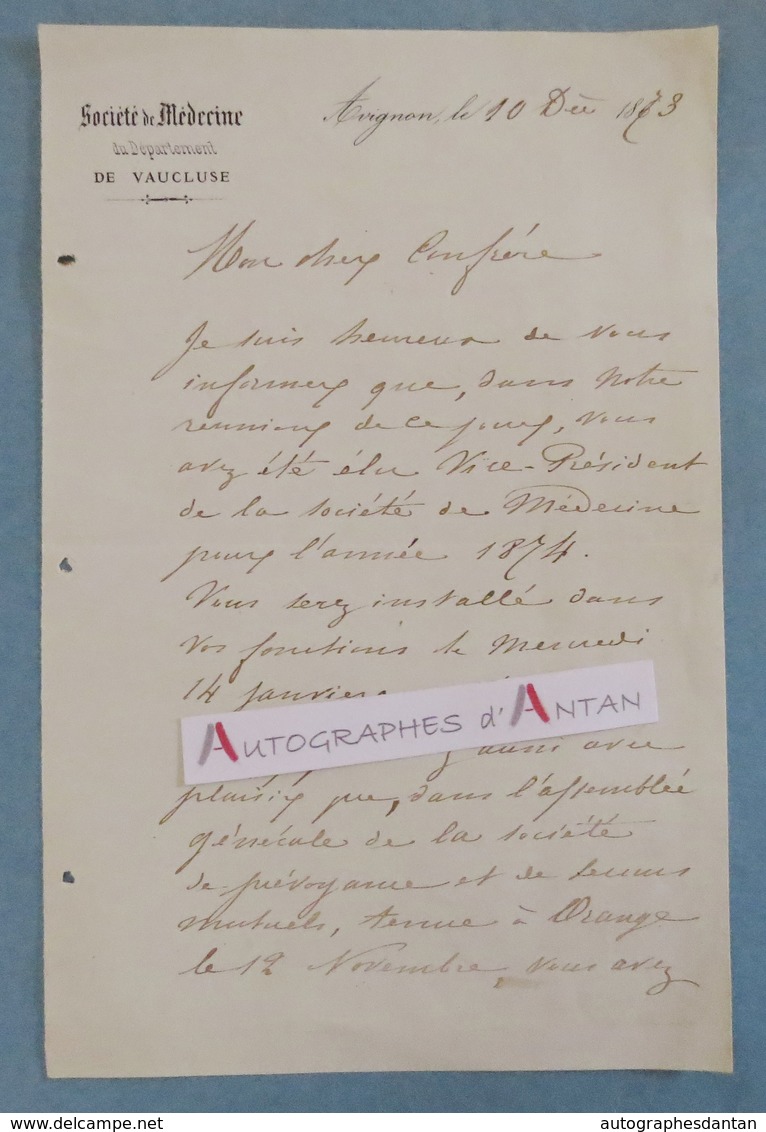 Société de Médecine
du Département
DE VAUCLUSE
Avignon, le 10 Déc 1873
Mon cher Confrére
Je suis heureux de vous
informer que, dans notre
reunion de ce jour, vous
avez été élu Vice-Président
de la société de Médecine
pour l'année 1874.
Vous serez installé dans
vos fonctions le Mercredi
14 Janvier
AUTOGRAPHES d'ANTAN
aussi avec
plaisir que, dans l'assemblée
générale de la société
de prévoyance et de secours
mutuels, tenue à Orange
le 12 Novembre, vous avez
www.delcampe.net
autographesdantan